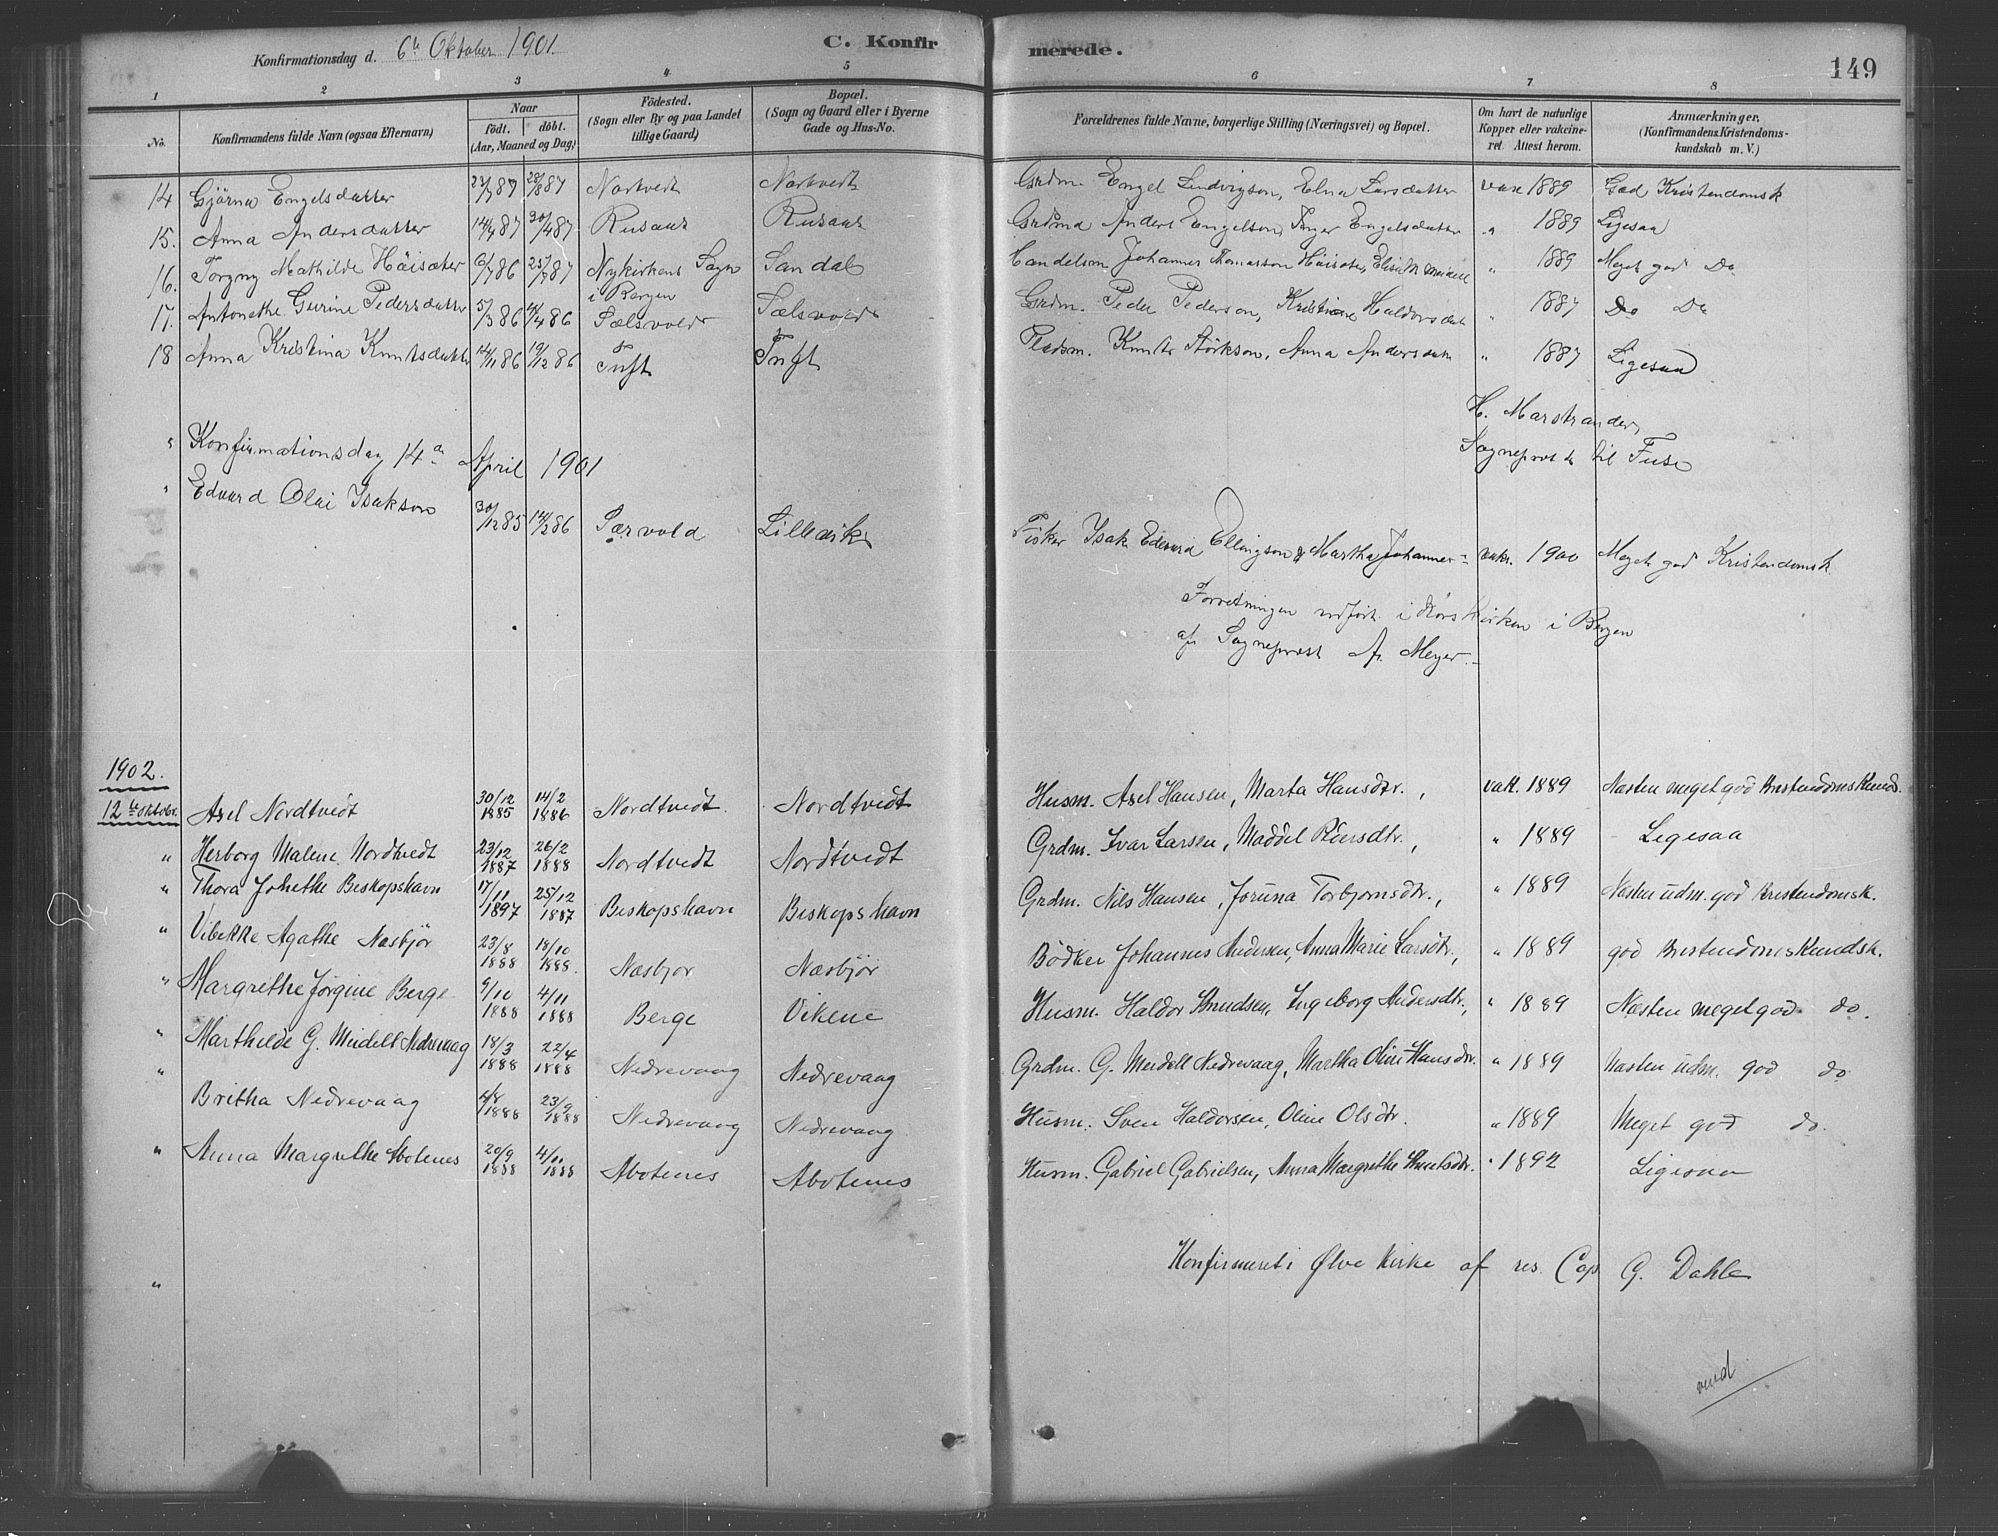 Konfirmationsdag d. 6te Oktober 1901. C. Konfirmerede. 149
1 2 3 4 5 6 7 8
No. Konfirmandens fulde Navn (ogsaa Efternavn) Naar født. døbt. (Aar, Maaned og Dag.) Fødested. (Sogn eller By og paa Landet tillige Gaard) Bopæl. (Sogn og Gaard eller i Byerne Gade og Hus-No. Forældrenes fulde Navne, borgerlige Stilling (Næringsvei) og Bopæl. Om havt de naturlige Kopper eller vakcineret. Attest herom. Anmærkninger. (Konfirmandens Kristendomskundskab m. V.)
14 Gjørna Engelsdatter 87 28/8 87 Nortvedt Nortvedt Grdm. Engel Ludvigson, Elna Larsdatter vax 1889 God Kristendomsk
15. Anna Andersdatter 87 30/4 87 Rusaas Rusaas Grdm. Anders Engelson, Inger Engelsdatter " 1889 Ligesaa
16. Torgny Mathilde Høisæter 6/7 86 87 Nykirkens Sogn i Bergen Sandal Handelsm Johannes Thomasson Høisæter, " 1889 Meget god Do
17. Antonethe Gurine Pedersdatter 5/3 86 4/4 86 Sælsvold Sælsvold Grdm. Peder Pederson, Kristiane Haldorsdat " 1887 Do Do
18 Anna Kristina Knutsdatter 14/11 86 19/12 86 Tuft Tuft Pladsm. Knut Størkson, Anna Andersdatr " 1887 Ligesaa
H. Marstrander,
Sogneprest til Fuse
" Konfirmationsday 14de April 1901
" Edvard Olai Isakson 30/12 85 14/2 86 Særvold Lillevik Fisker Isak Edvard Ellingson & Martha Johannes- vakc. 1900 Meget god Kristendomsk
Forretningen udført i Korskirken i Bergen
af Sogneprest Meyer.-
1902.
12te Oktobr. Axel Nordtvedt 30/12 1885 14/2 1886 Nordtvedt. Nordtvedt Husm. Axel Hansen, Marta Hansdtr., vakk. 1889 Næsten meget god Kristendomskunds.
" Herborg Malene Nordtvedt 23/12 1887 26/2 1888 Nordtvedt Nordtvedt Grdm. Ivar Larsen, Maddel Røersdtr., " 1889 - Ligesaa
" Thora Johethe Biskopshavn 17/11 1897 25/12 1887 Biskopshavn Biskopshavn Grdm. Nils Hansen, Joruna Torbjornsdtr., " 1889 Næsten udm. god Kristendomsk.
" Vibekke Agathe Næsbjør 23/8 1888 18/10 1888. Næsbjør Næsbjør Bødker Johannes Andersen, Anna Marie Larsdtr., " 1889 god Kristendomskundsk.
" Margrethe Jørgine Berge 9/10 1888 4/11 1888 Berge Vikene Husm. Haldor Knudsen, Ingeborg Andersdtr., " 1889 Næsten meget god do.
" Marthilde G. Meidell Nedrevaag 18/3 1888 22/4 1888 Nedrevaag Nedrevaag Grdm. G. Meidell Nedrevaag, Martha Oline Hansdtr. " 1889 Næsten udm. god do
" Britha Nedrevaag 4/8 1888 23/9 1888 Nedrevaag Nedrevaag Husm. Sven Haldorsen, Oline Olsdtr. " 1889 Meget god do.
" Anna Margrethe Abotenes 20/9 1888 4/11 1888 Abotenes Abotenes Husm. Gabriel Gabrielsen, Anna Margrethe Knutsdtr. " 1892 Ligesaa
" Konfirmeret i Ølve Kirke af res. Cap G. Dahle
vend